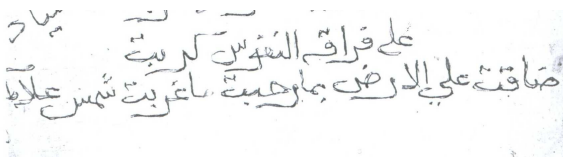 على فراق النفوس كربت
ضاقت علي الارض بما رحبت ما غربت شمس علا